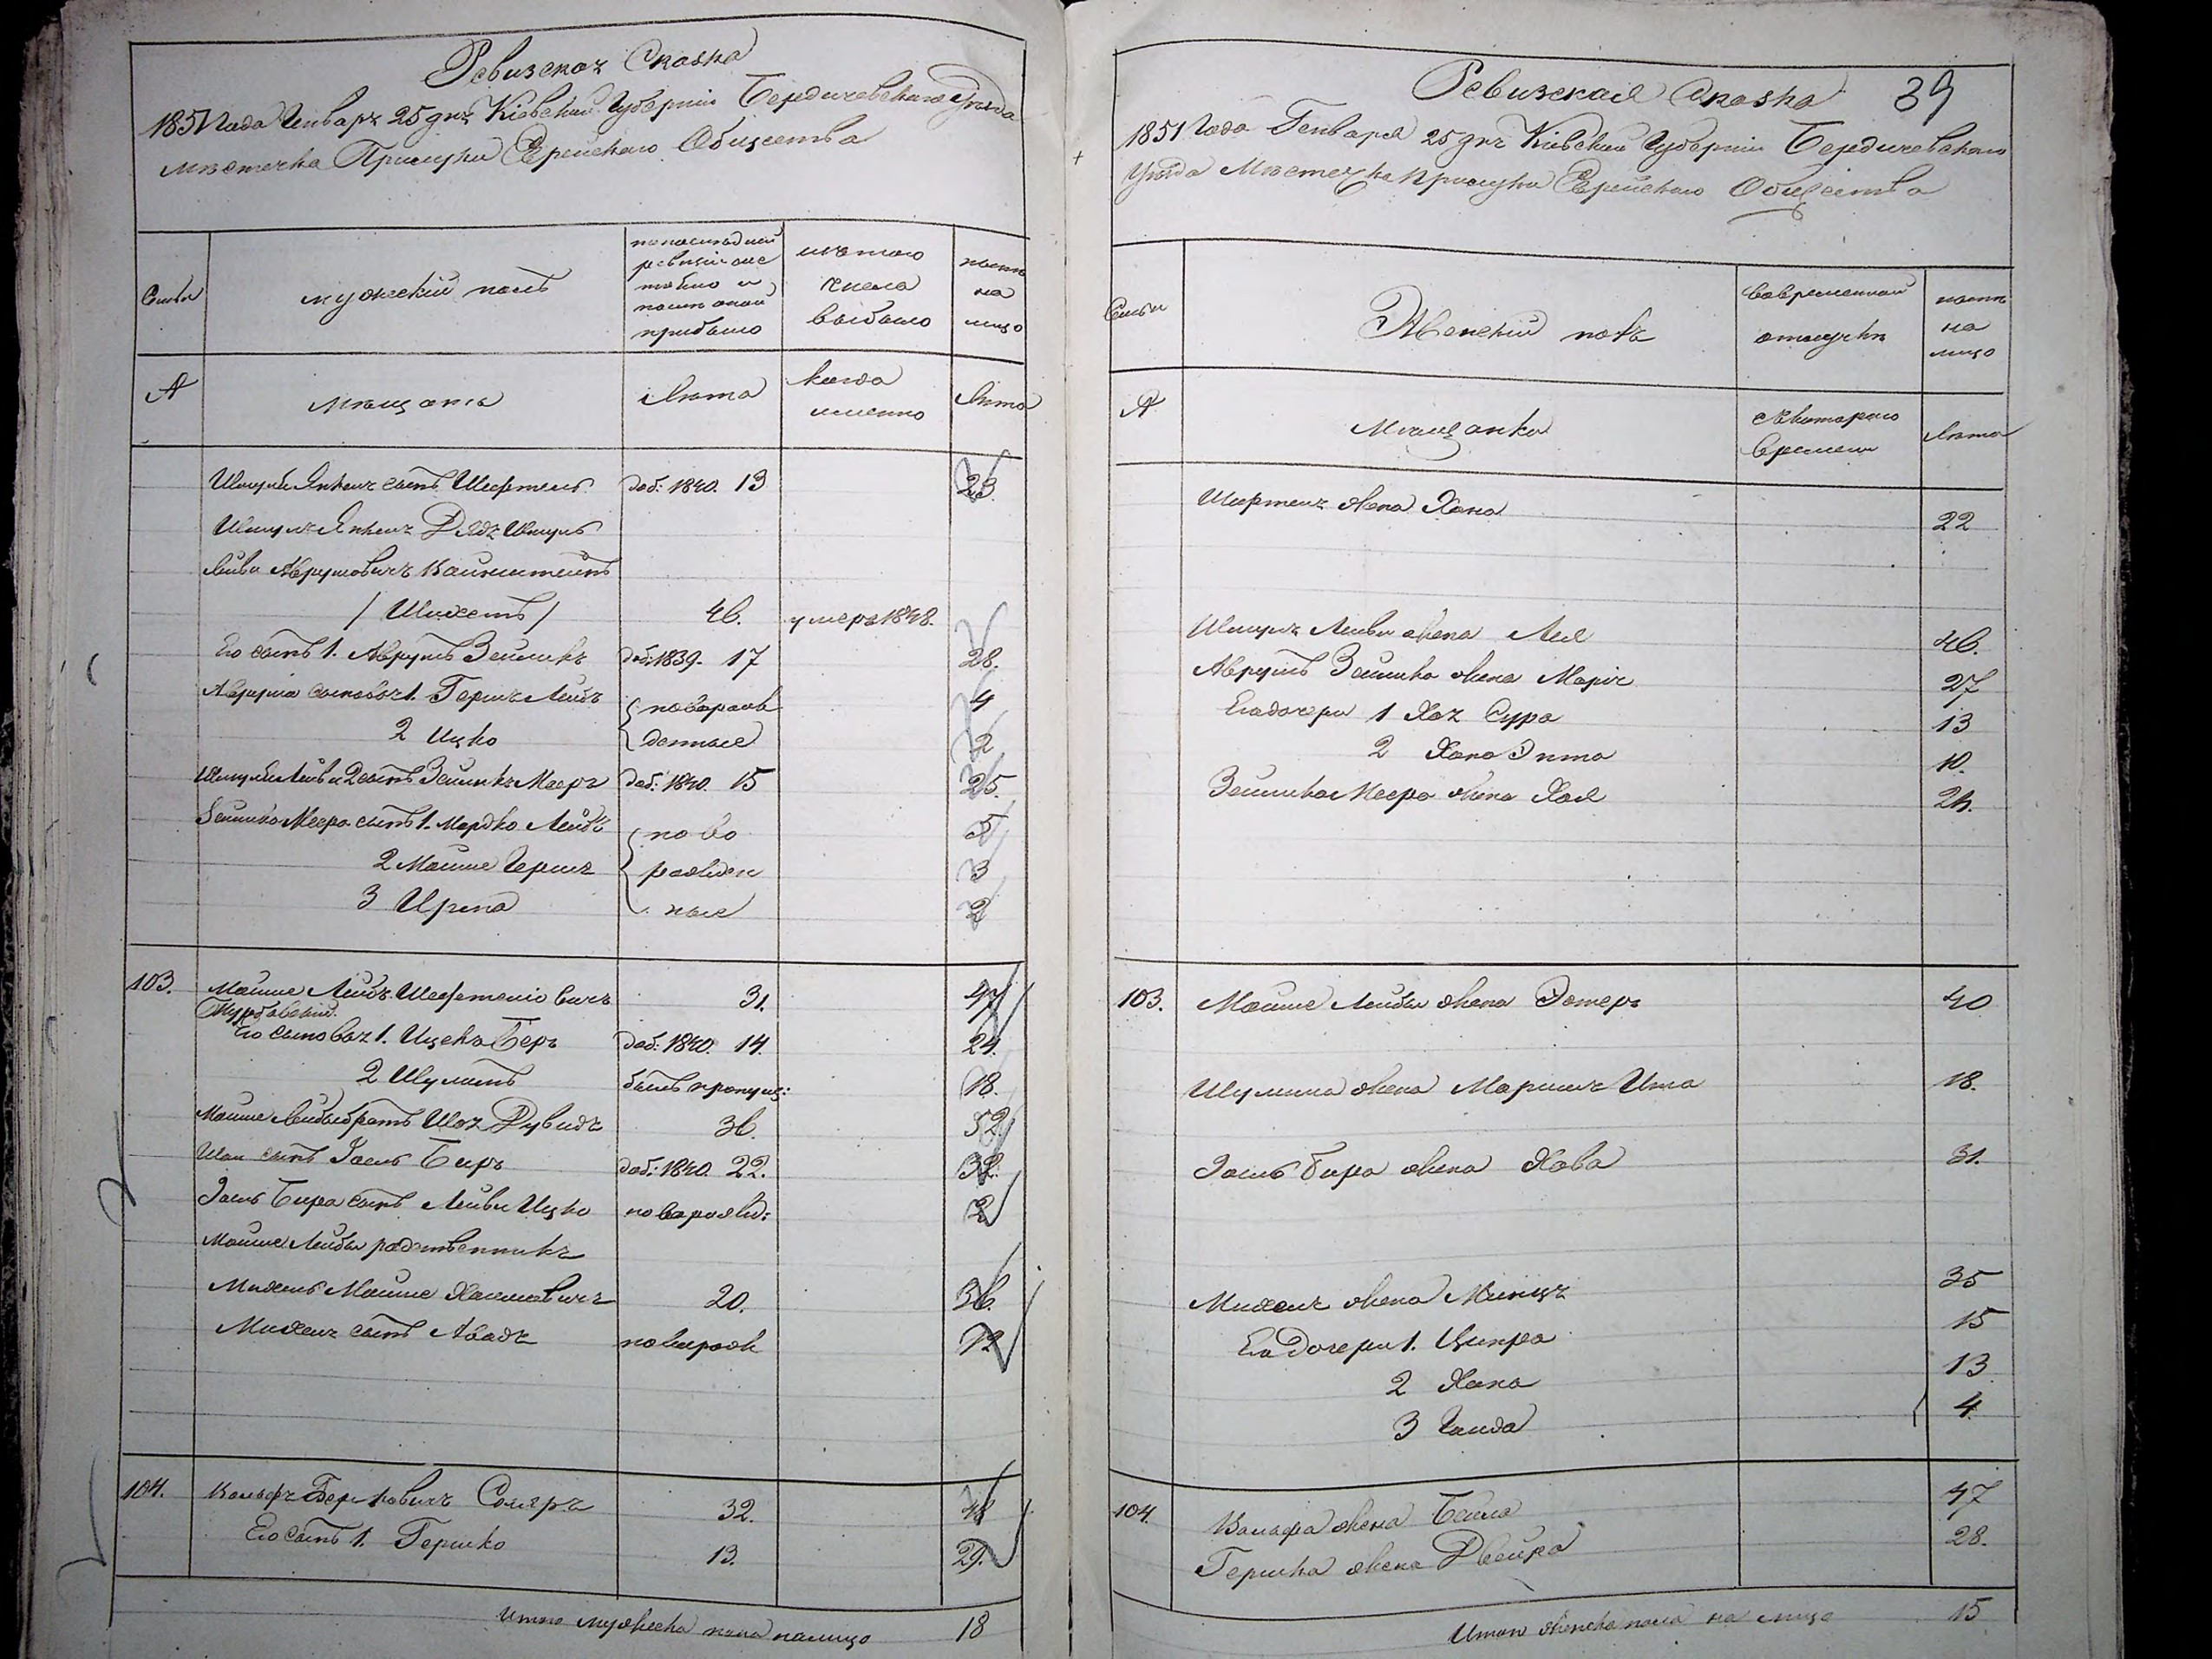 Ревизская Сказка
1851 Года Генваря 25 дня Кіевской Губерніи Бердичевскаго Уѣзда
Мѣстечка Прилуки Еврейскаго Общества
Семьи
мужескій полъ
по последней
ревизіи
состояло и
после оной
прибыло
изъ того
числа
выбыло
нынѣ
на
лицо
А
Мѣщане
Лѣта
когда
именно
Лѣта
Шмуля Янкеля сынъ Шефтель доб: 1840. 13 23
Шмуля Янкеля Дядя Шмуль
Лейви Аврумовичъ
46. умеръ 1848.
Его сынъ 1. Аврумъ Зейликъ доб: 1839. 17 28.
Аврума сыновья 1. Гершъ Лейбъ новорож 4
2 Ицко денные 2
Шмуля Лейви 2 сынъ Зейликъ Мееръ доб: 1840. 15 25.
Зейлика Меера сынъ 1. Мордко Лейбъ ново 5
2 Мошие Гершъ рожден 3
3 Ные 2
103. Мошие Лейбъ Шефтеліовичъ 31. 47
Его сыновья 1. Ицекъ Беръ доб: 1840. 14. 24.
2 Шулимъ былъ пропущ: 18.
Мошие Лейбы братъ Шая Дувидъ 36. 52
Шаи сынъ Іосль Беръ доб: 1840. 22. 32.
Іосль Бера сынъ Лейви Ицко новорожд: 2
Мошие Лейбы родственникъ
Михель Мошие Хаимовичъ 20. 36.
Михеля сынъ Авадъ новорож 12
104. Вольфъ Берковичъ Соляръ 32. 48
Его сынъ 1. Гершко 13. 29.
Итого мужеска пола налицо 18
Ревизская Сказка 39
1851 Года Генваря 25 дня Кіевской Губерніи Бердичевскаго
Уѣзда Мѣстечка Прилуки Еврейскаго Общества
Семьи
Женскій полъ
Во временной
отлучкѣ
нынѣ
на
лицо
А
Мѣщанки
Съ котораго
времени
Лѣта
Шефтеля жена Хана 22
Шмуля Лейви жена Лея 46.
Аврумъ Зейлика жена Марія 27
Его дочери 1 Хая Сура 13
2 Хана Энта 10.
Зейлика Меера жена Хая 24.
103. Мошие Лейбы жена Эстеръ 40
Шулима жена Маріимъ Ита 18.
Іосль Бера жена Хава 31.
Михеля жена Минця 35
Его Дочери 1. Ципра 15
2 Хана 13
3 Гинда 4.
104. Вольфа жена Бейла 47
Гершка жена Двейра 28.
Итого женска пола на лицо 15